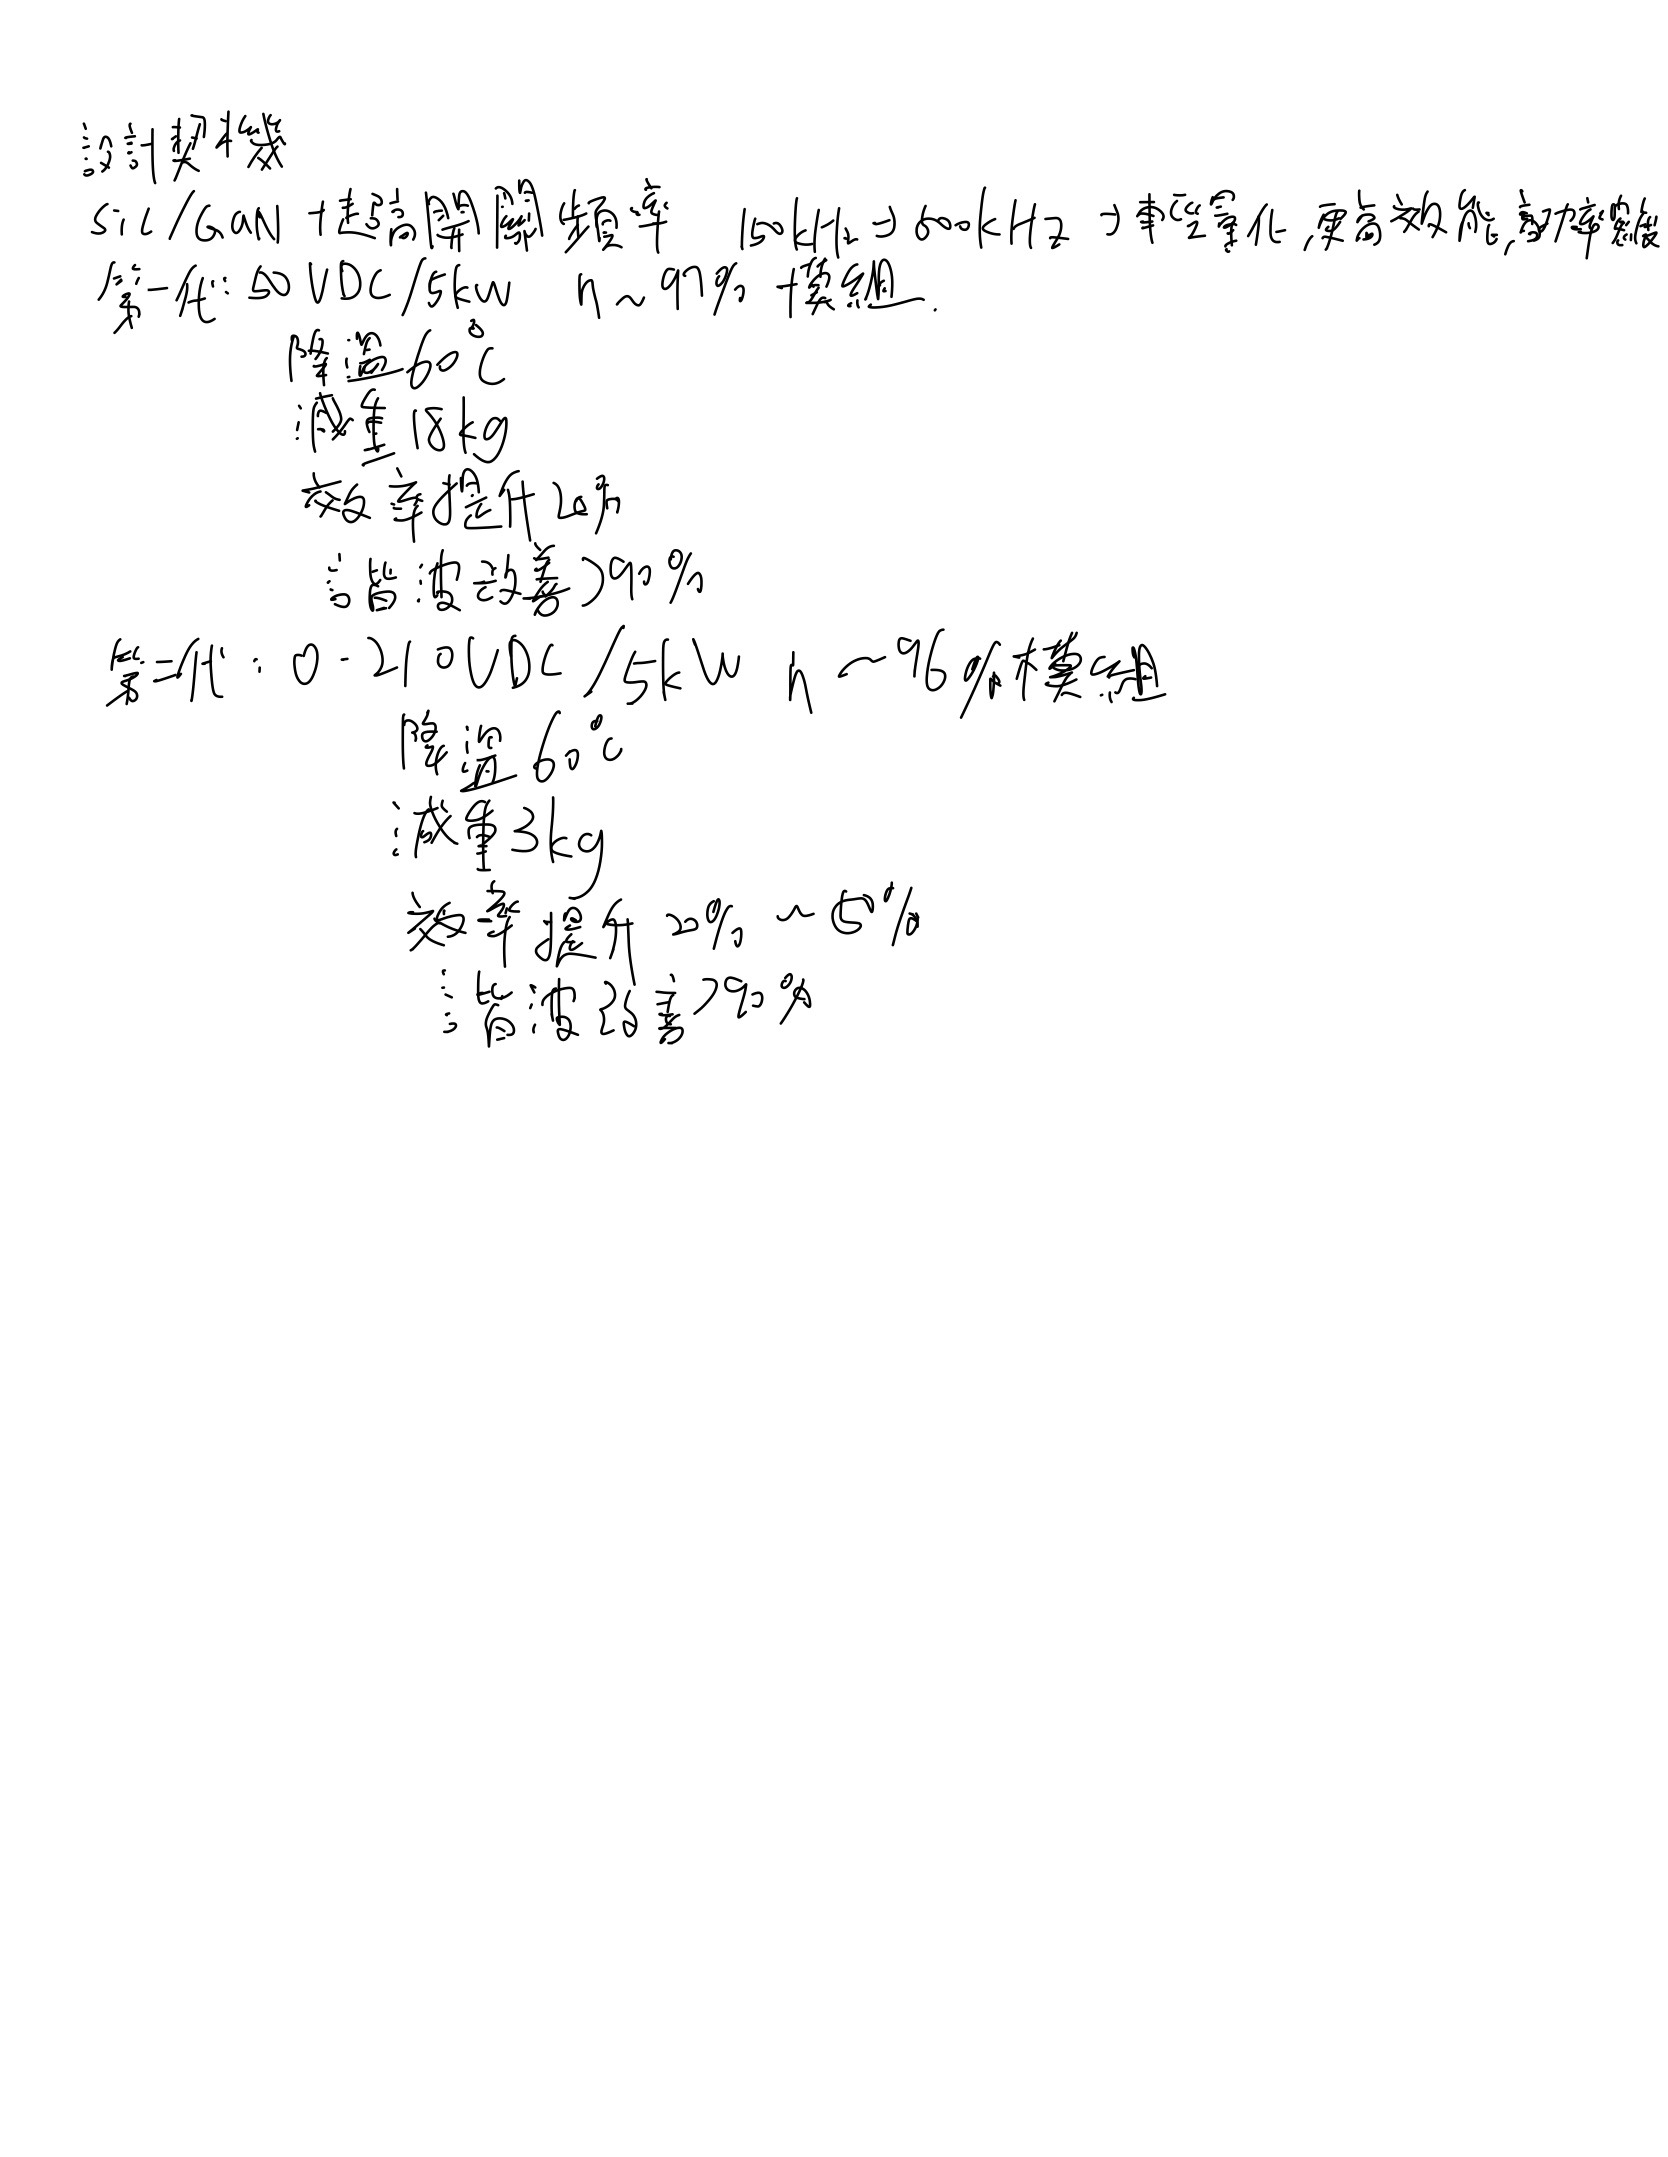 設計契機
SiC/GaN + 超高開關頻率 150kHz → 600kHz → 輕量化,更高效能,高功率密度
第一代: 50VDC/5kW η ~ 97% 模組.
降溫60°C
減重18kg
效率提升20%
諧波改善>90%
第二代: 0-210VDC/5kW η ~ 96% 模組
降溫60°C
減重3kg
效率提升20% ~ 5%
諧波改善>90%